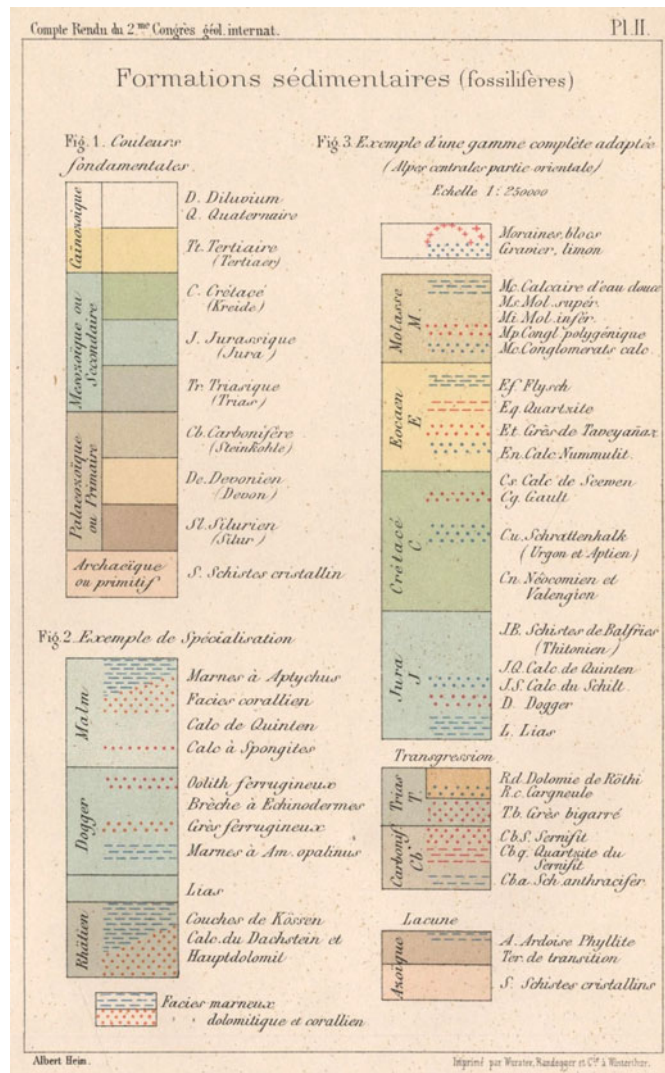 Compte Rendu du 2.me Congrès géol. internat.
Pl. II.
Formations sédimentaires (fossilifères)
Fig. 1. Couleurs
fondamentales.
Caïnozoïque
D. Diluvium
Q. Quaternaire
Tt. Tertiaire
(Tertiaer)
Mesozoïque ou
Secondaire
C. Crétacé
(Kreide)
J. Jurassique
(Jura)
Tr. Triasique
(Trias)
Palaeozoïque
ou Primaire
Cb. Carbonifère
(Steinkohle)
De. Devonien
(Devon)
Sl. Silurien
(Silur)
Archaeïque
ou primitif
S. Schistes cristallin
Fig. 2. Exemple de Spécialisation
Malm
Marnes à Aptychus
Facies corallien
Calc de Quinten
Calc à Spongites
Dogger
Oolith ferrugineux
Brèche à Echinodermes
Grès ferrugineux
Marnes à Am. opalinus
Lias
Rhätien
Couches de Kössen
Calc. du Dachstein et
Hauptdolomit
Facies marneux
dolomitique et corallien
Fig. 3. Exemple d'une gamme complète adaptée
(Alpes centrales partie orientale)
Echelle 1: 250000
Moraines, blocs
Gravier, limon
Molasse
M.
Mc. Calcaire d'eau douce
Ms. Mol. supér.
Mi. Mol. infér.
Mp. Congl polygénique
Mc. Conglomerats calc
Eocaen
E
Ef. Flysch
Eq. Quartzite
Et. Grès de Taveyañax
En. Calc Nummulit.
Crétacé
C
Cs. Calc de Seewen
Cg. Gault
Cu. Schrattenkalk
(Urgon et Aptien)
Cn. Néocomien et
Valengion
Jura
J
J.B. Schistes de Balfries
(Thitonien)
J.Q. Calc de Quinten
J.S. Calc du Schilt
D. Dogger
L. Lias
Transgression
Trias
T.
R.d. Dolomie de Röthi
R.c. Cargneule
T.b. Grès bigarré
Carbonif
Cb
Cb.S. Sernifit
Cb.q. Quartzite du
Sernifit
Cb.a. Sch. anthracifer
Lacune
Azoïque
A. Ardoise Phyllite
Ter. de transition
S. Schistes cristallins
Albert Heim.
Imprimé par Wurster, Randegger et Cie à Winterthur.